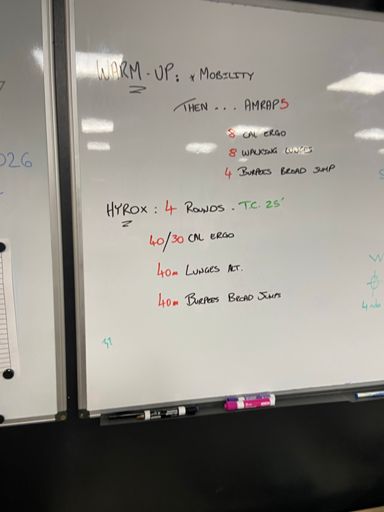 WARM-UP: * MOBILITY
THEN... AMRAP5
8 CAL ERGO
8 WALKING LUNGES
4 BURPEES BROAD JUMP
HYROX: 4 ROUNDS. T.C. 25'
40/30 CAL ERGO
40m LUNGES ALT.
40m BURPEES BROAD JUMPS
026